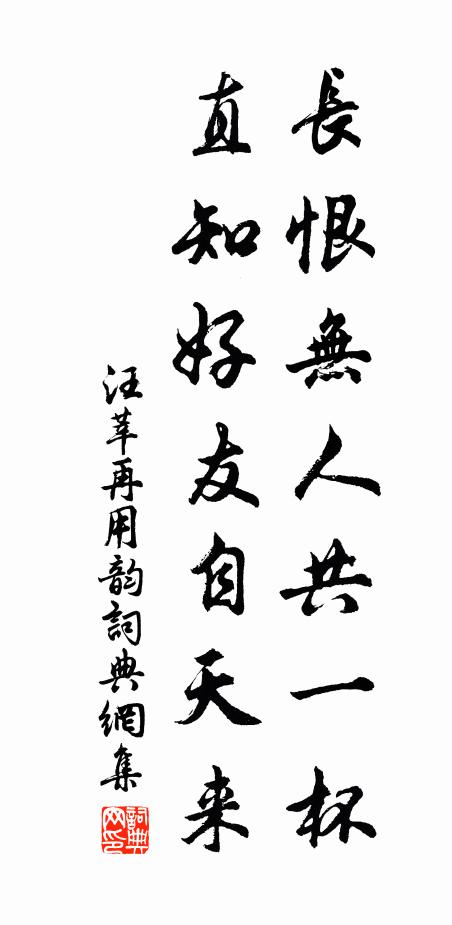 長恨無人共一杯
直知好友自天来
汪莘再用韵詞典網集
詞典網印